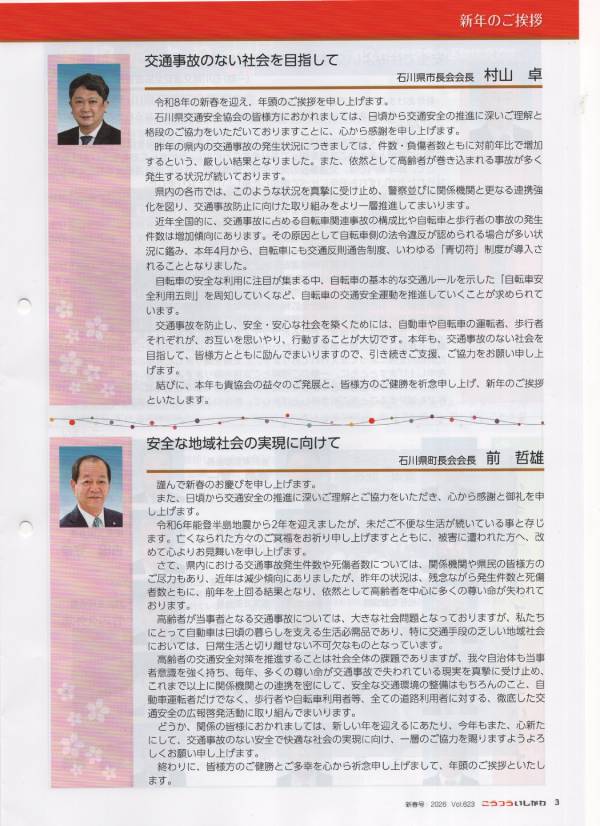 新年のご挨拶
交通事故のない社会を目指して
石川県市長会会長 村山 卓
令和8年の新春を迎え、年頭のご挨拶を申し上げます。
石川県交通安全協会の皆様方におかれましては、日頃から交通安全の推進に深いご理解と
格段のご協力をいただいておりますことに、心から感謝を申し上げます。
昨年の県内の交通事故の発生状況につきましては、件数・負傷者数ともに対前年比で増加
するという、厳しい結果となりました。また、依然として高齢者が巻き込まれる事故が多く
発生する状況が続いております。
県内の各市では、このような状況を真摯に受け止め、警察並びに関係機関と更なる連携強
化を図り、交通事故防止に向けた取り組みをより一層推進してまいります。
近年全国的に、交通事故に占める自転車関連事故の構成比や自転車と歩行者の事故の発生
件数は増加傾向にあります。その原因として自転車側の法令違反が認められる場合が多い状
況に鑑み、本年4月から、自転車にも交通反則通告制度、いわゆる「青切符」制度が導入さ
れることとなりました。
自転車の安全な利用に注目が集まる中、自転車の基本的な交通ルールを示した「自転車安
全利用五則」を周知していくなど、自転車の交通安全運動を推進していくことが求められて
います。
交通事故を防止し、安全・安心な社会を築くためには、自動車や自転車の運転者、歩行者
それぞれが、お互いを思いやり、行動することが大切です。本年も、交通事故のない社会を
目指して、皆様方とともに励んでまいりますので、引き続きご支援、ご協力をお願い申し上
げます。
結びに、本年も貴協会の益々のご発展と、皆様方のご健勝を祈念申し上げ、新年のご挨拶
といたします。
安全な地域社会の実現に向けて
石川県町長会会長 前 哲雄
謹んで新春のお慶びを申し上げます。
また、日頃から交通安全の推進に深いご理解とご協力をいただき、心から感謝と御礼を申
し上げます。
令和6年能登半島地震から2年を迎えましたが、未だご不便な生活が続いている事と存じ
ます。亡くなられた方々のご冥福をお祈り申し上げますとともに、被害に遭われた方へ、改
めて心よりお見舞いを申し上げます。
さて、県内における交通事故発生件数や死傷者数については、関係機関や県民の皆様方の
ご尽力もあり、近年は減少傾向にありましたが、昨年の状況は、残念ながら発生件数と死傷
者数ともに、前年を上回る結果となり、依然として高齢者を中心に多くの尊い命が失われて
おります。
高齢者が当事者となる交通事故については、大きな社会問題となっておりますが、私たち
にとって自動車は日頃の暮らしを支える生活必需品であり、特に交通手段の乏しい地域社会
においては、日常生活と切り離せない不可欠なものとなっています。
高齢者の交通安全対策を推進することは社会全体の課題でありますが、我々自治体も当事
者意識を強く持ち、毎年、多くの尊い命が交通事故で失われている現実を真摯に受け止め、
これまで以上に関係機関との連携を密にして、安全な交通環境の整備はもちろんのこと、自
動車運転者だけでなく、歩行者や自転車利用者等、全ての道路利用者に対する、徹底した交
通安全の広報啓発活動に取り組んでまいります。
どうか、関係の皆様におかれましては、新しい年を迎えるにあたり、今年もまた、心新た
にして、交通事故のない安全で快適な社会の実現に向け、一層のご協力を賜りますようよろ
しくお願い申し上げます。
終わりに、皆様方のご健勝とご多幸を心から祈念申し上げまして、年頭のご挨拶といたし
ます。
新春号 2026 Vol.623 こうつういしかわ 3